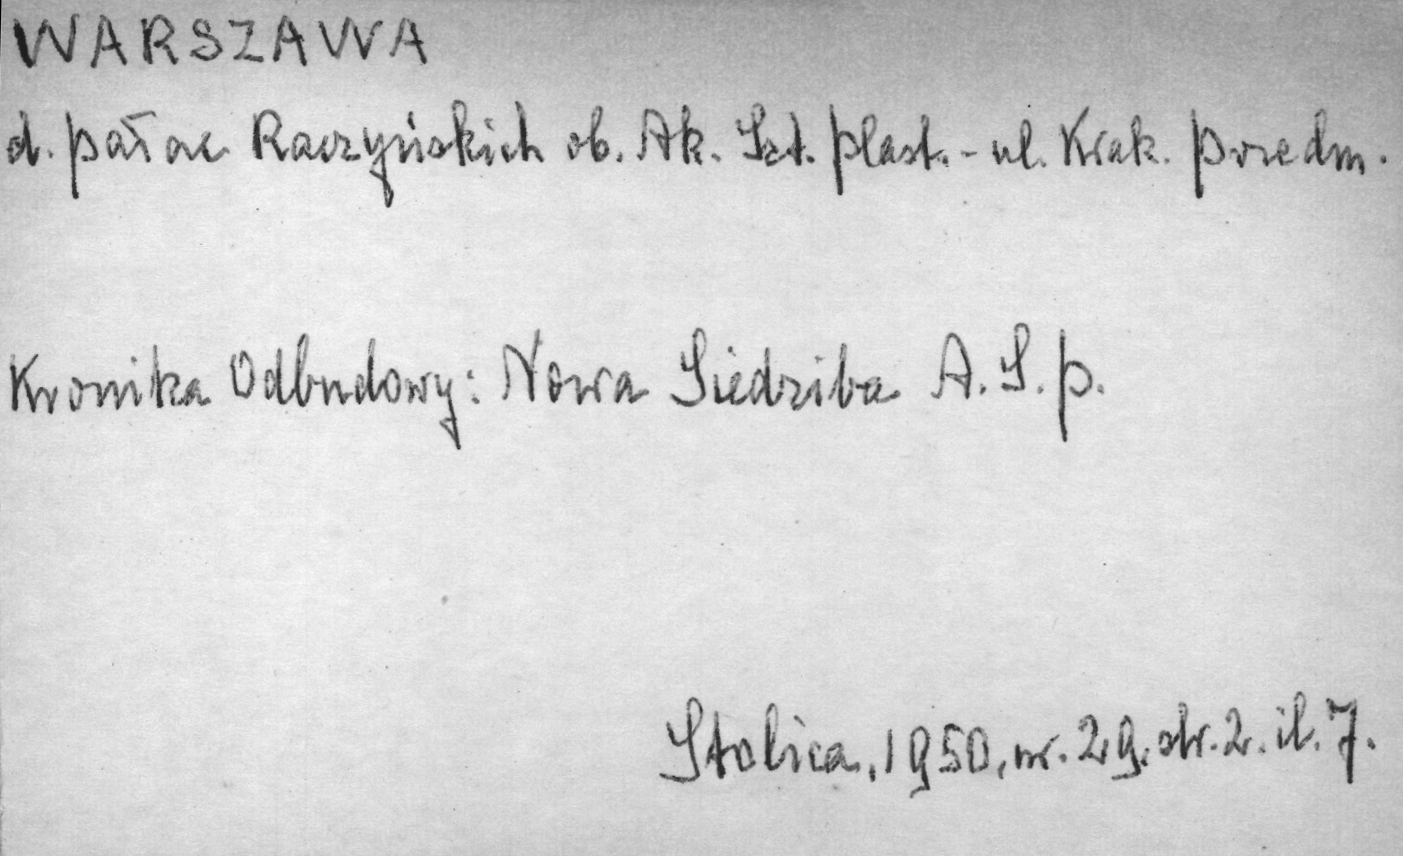 WARSZAWA
d. pałac Raczyńskich ob. Ak. Szt. plast. - ul. Krak. Przedm.
Kronika Odbudowy: Nowa Siedziba A. S. P.
Stolica, 1950, nr. 29. str. 2. il. 7.